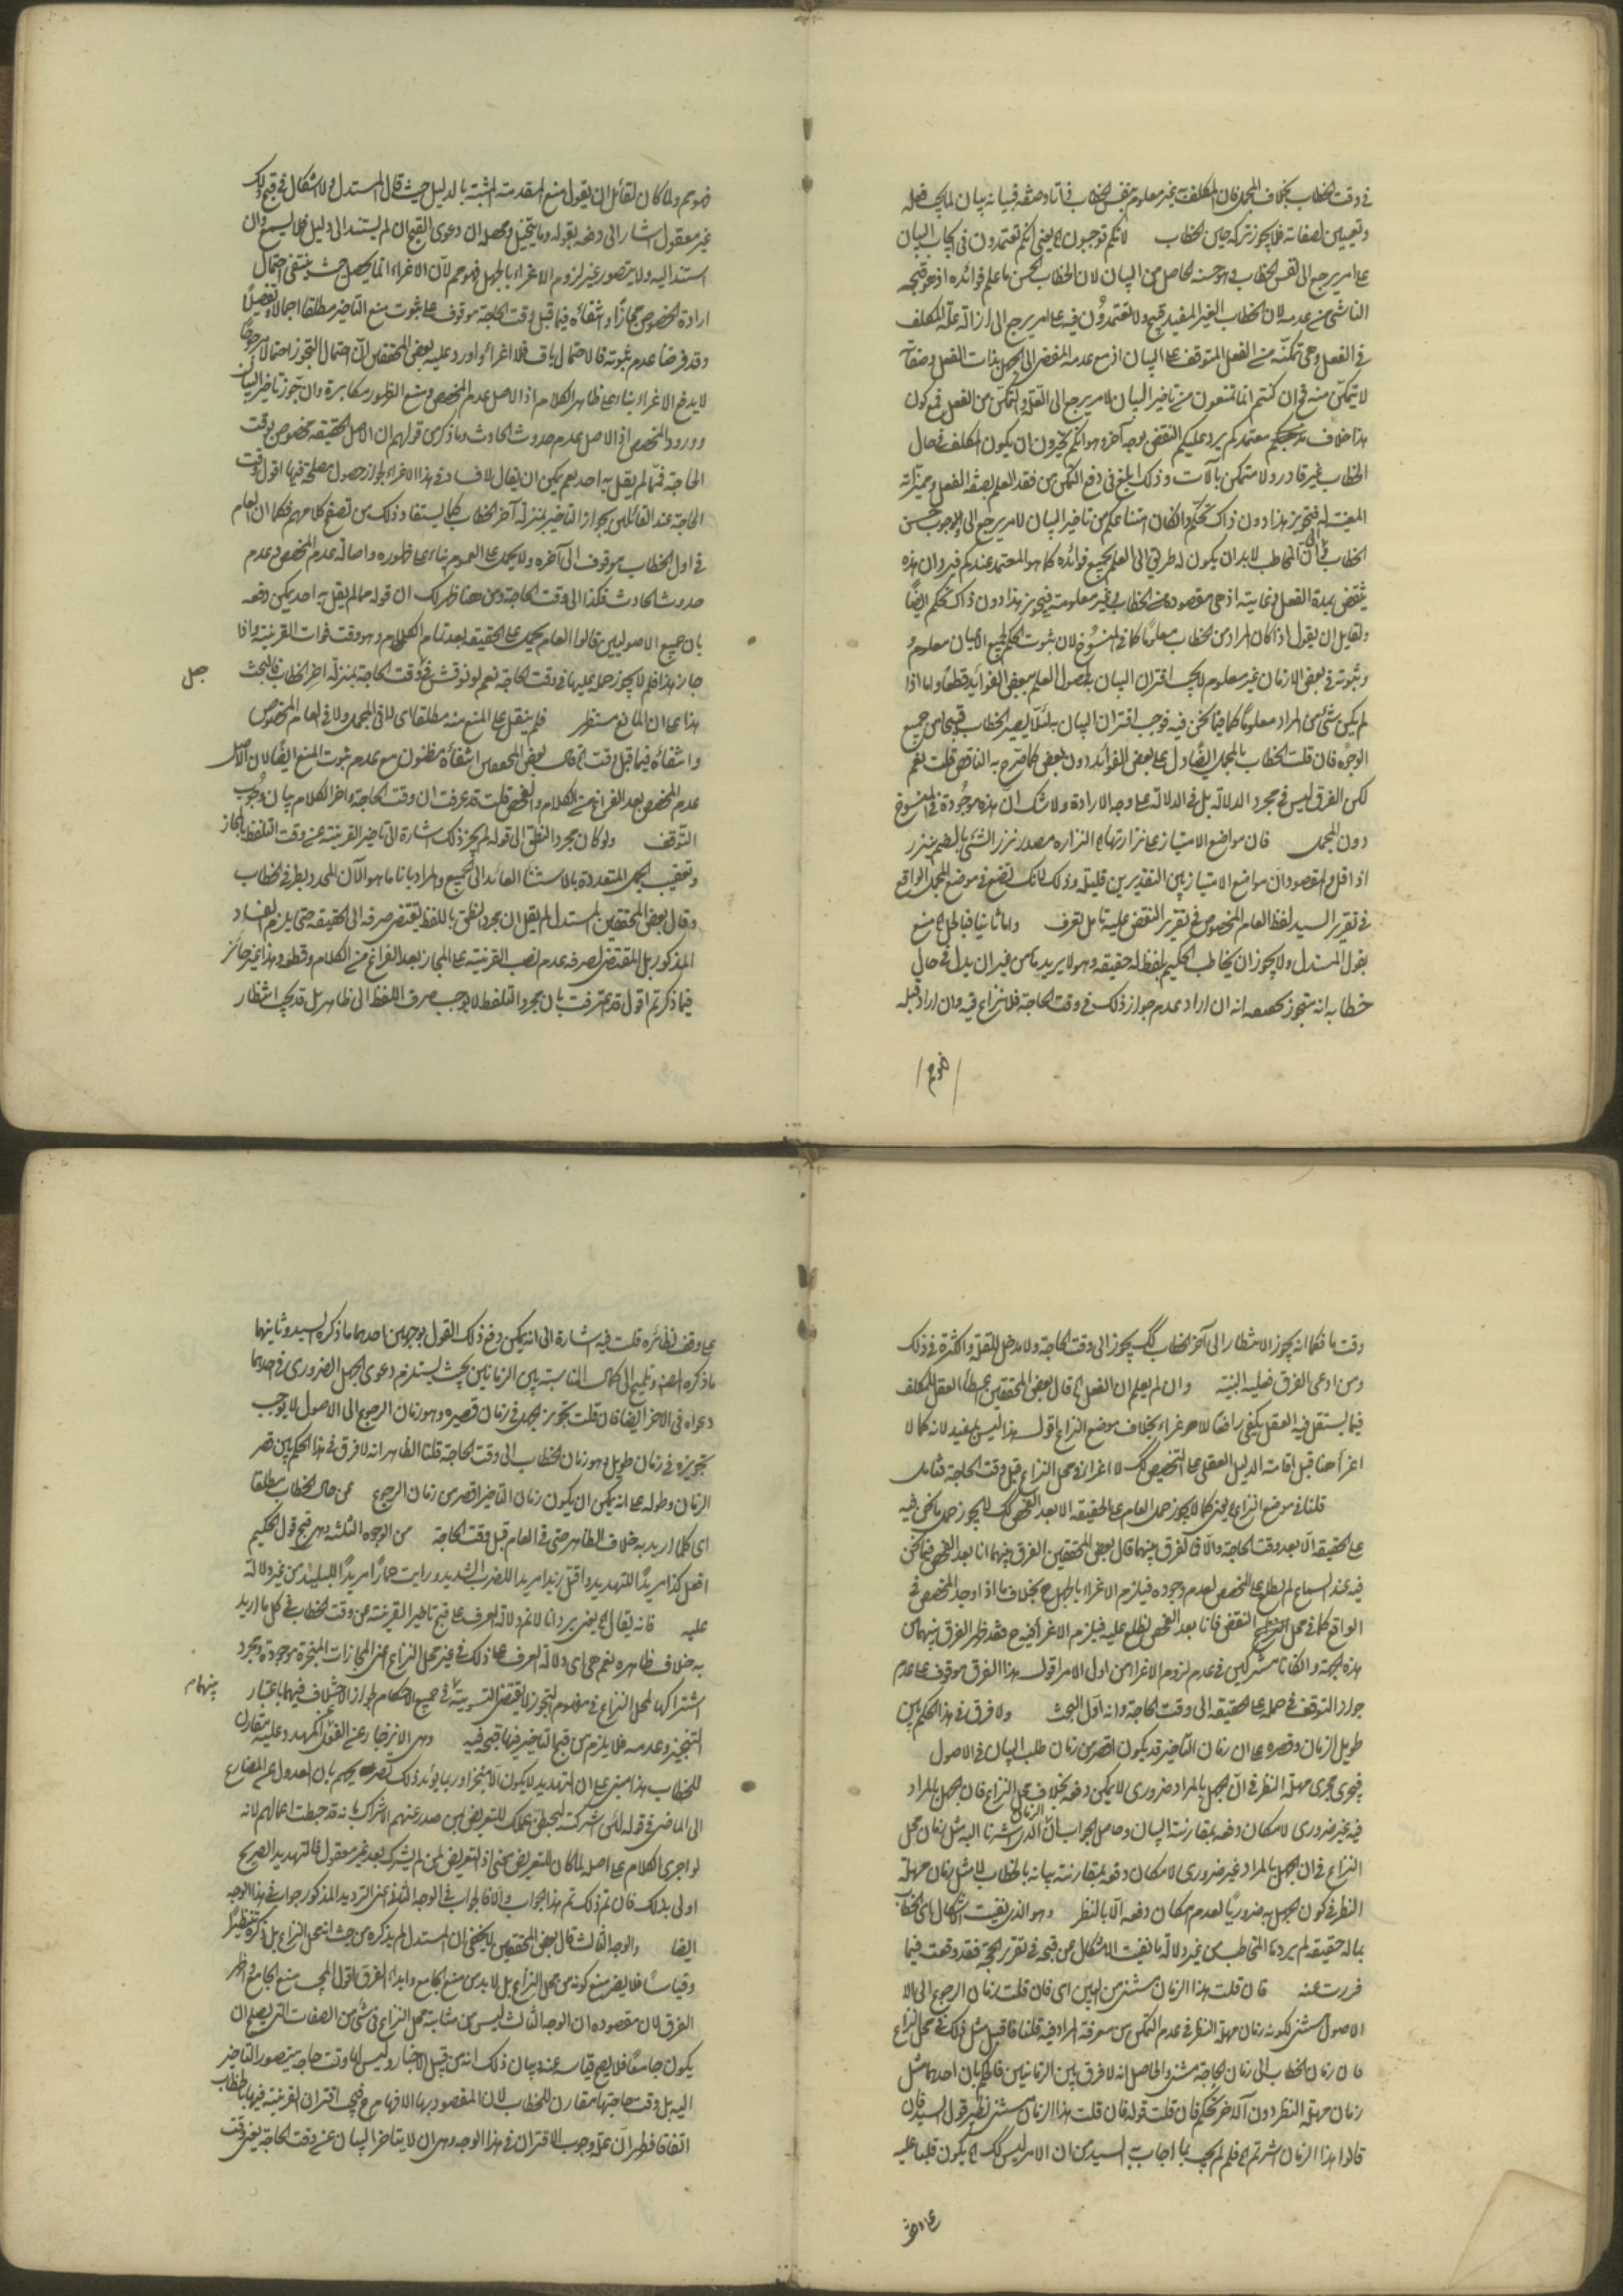 في وقت الخطاب بخلاف المجمل فان المكلف به غير معلوم بنفس الخطاب فبيانه بيان لما يجب فعله
وتعيين لصفاته فلا يجوز تركه حين الخطاب لانكم توجبون اه يعني انكم تعتمدون في ايجاب البيان
على امر يرجع الى نفس الخطاب وهو حسنه الحاصل من البيان لان الخطاب يحسن ما علم فوائده اذ هو قبحه
الناشي من عدمه لان الخطاب الغير المفيد قبيح ولا تعتمدون فيه على امر يرجع الى ازالة علة المكلف
في الفعل وهي تمكنه من الفعل المتوقف على البيان اذ مع عدمه المفضي الى الجهل بذات الفعل وصفاته
لا يتمكن منه فان كنتم انما تمنعون من تاخير البيان لامر يرجع الى العلة والتمكن من الفعل فمع كون
هذا خلاف معتمدكم يرد عليكم النقض بوجه آخر وهو انكم تجيزون ان يكون المكلف في حال
الخطاب غير قادر ولا متمكن بآلات وذلك ابلغ في دفع التمكن من فقد العلم بصفة الفعل ومميزاته
المعينة له فتجويز هذا دون ذاك تحكم وان كان امتناعكم من تاخير البيان لامر يرجع الى وجوب حسن
الخطاب في ان المخاطب لا بد ان يكون له طريق الى العلم بجميع فوائده كما هو المعتمد عندكم فيرد ان هذه
ينتقض بمدة الفعل وغايته اذ هي مقصوده من الخطاب وغير معلومة فتجويز هذا دون ذاك تحكم ايضا
ولقايل ان يقول اذا كان المراد من الخطاب معلوما كما في المنسوخ لان ثبوت الحكم لجميع الاعيان معلوم
وثبوته في بعض الازمان غير معلوم لا يجب اقتران البيان به لحصول العلم ببعض الفوائد قطعا واما اذا
لم يكن شئ من المراد معلوما كما فيما نحن فيه فوجب اقتران البيان به لئلا يصير الخطاب قبيحا من جميع
الوجوه فان قلت الخطاب بالمجمل ايضا دل على بعض الفوائد دون بعض كما صرح به الناقض قلت نعم
لكن الفرق ليس في مجرد الدلالة بل في الدلالة على وجه الارادة ولا شك ان هذه موجودة في المنسوخ
دون المجمل فان مواضع الامتياز على نزارتها اه النزارة مصدر نزر الشئ بالضم ينزر
اذا قل والمقصود ان مواضع الامتياز بين التقديرين قليلة وذلك لانك تضع في موضع المجمل الواقع
في تقرير السيد لفظ العام المخصوص في تقرير النقض عليه تامل تعرف واما ثانيا فبالحل اه منع
بقول المستدل ولا يجوز ان يخاطب الحكيم بلفظ له حقيقة وهو لا يريدها من غير ان يدل في حال
خطابه انه متجوز انه ان اراد عدم جواز ذلك في وقت الحاجة فلا نزاع فيه وان اراد قبله
فهو مم ولما كان لقائل ان يقول منع المقدمة المثبتة بالدليل حيث قال المستدل ولا اشكال في قبح ذلك
غير معقول اشار الى دفعه بقوله وما يتخيل ومحصله ان دعوى القبح ان لم يستند الى دليل فلا يسمع وان
استند اليه ولا يتصور غير لزوم الاغراء بالجهل فهو مم لان الاغراء انما يحصل حيث ينتفي احتمال
ارادة الخصوص مجازا وانتفائه فيما قبل وقت الحاجة موقوف على ثبوت منع التاخير مطلقا اجمالا وتفصيلا
وقد فرضنا عدم ثبوته فالاحتمال باق فلا اغراء واورد عليه بعض المحققين ان احتمال التجوز احتمالا مرجوحا
لا يدفع الاغراء بناء على ظاهر الكلام اذ الاصل عدم المخصص ومنع الظهور مكابرة وان جوز تاخير البيان
وورود المخصص اذ الاصل عدم حدوث الحادث وما ذكر من قولهم ان الاصل الحقيقة مخصوص بوقت
الحاجة فمما لم يقل به احد نعم يمكن ان يقال لا فساد في هذا الاغراء لجواز حصول مصلحة فيها اقول وقت
الحاجة عند القائلين بجواز التاخير بمنزلة آخر الخطاب كما يستفاد ذلك من تصفح كلامهم فكما ان العام
في اول الخطاب موقوف الى آخره ولا يحمل على العموم بناء على ظهوره واصالة عدم المخصص وعدم
حدوث الحادث فكذا الى وقت الحاجة ومن هنا ظهر لك ان قوله مما لم يقل به احد يمكن دفعه
بان جميع الاصوليين قالوا العام يحمل على الحقيقة بعد تمام الكلام وهو وقت فوات القرينة واذا
جاز هذا فلم لا يجوز حمله عليها في وقت الحاجة نعم لو نوقش في وقت الحاجة بمنزلة آخر الخطاب فالبحث
هذا على ان المانع مستظهر فلم ينقل على المنع منه مطلقا اي لا في المجمل ولا في العام المخصوص
وانتفائه فيما قبل وقت اه قال بعض المحققين انتفائه مظنون مع عدم ثبوت المنع ايضا لان الاصل
عدم المخصص بعد الفراغ من الكلام والفحص قلت قد عرفت ان وقت الحاجة وآخر الكلام بيان وجوب
التوقف ولو كان مجرد النطق الى قوله لم يجز ذلك اشارة الى تاخير القرينة عن وقت التلفظ بالمجاز
وتعقيب الجمل المتعددة بالاستثناء العائد الى الجميع والمراد بانا ما هو الآن المحدد بطرفي الخطاب
وقال بعض المحققين المستدل لم يقل ان مجرد النطق باللفظ يقتضي صرفه الى الحقيقة حتى يلزم الفساد
المذكور بل المقتضي لصرفه عدم نصب القرينة على المجاز بعد الفراغ من الكلام وقطعه وهذا غير جائز
فيما ذكرتم اقول قد عرفت بان مجرد التلفظ لا يوجب صرف اللفظ الى ظاهره بل قد يجب انتظار
وقت ما فكما انه يجوز الانتظار الى آخر الخطاب كك يجوز الى وقت الحاجة ولا مدخل للقلة والكثرة في ذلك
ومن ادعى الفرق فعليه البينة وان لم يعلم ان الفعل اه قال بعض المحققين اعطاء العقل للمكلف
فيما يستقل فيه العقل يكفي رافعا للاغراء بخلاف موضع النزاع اقول هذا ليس بمفيد لانه كما لا
اغراء هنا قبل اقامة الدليل العقلي على التخصيص كك لا اغراء في محل النزاع قبل وقت الحاجة فتامل
قلنا في موضع النزاع يعني كما لا يجوز حمل العام على الحقيقة الا بعد الفحص كك لا يجوز حمل ما نحن فيه
على الحقيقة الا بعد وقت الحاجة والا فالفرق بينهما قال بعض المحققين الفرق بينهما انا بعد الفحص فيما نحن
فيه عند السماع لم نطلع على المخصص لعدم وجوده فيلزم الاغراء بالجهل ح بخلاف ما اذا وجد المخصص في
الواقع كما في محل النقض فانا بعد الفحص نطلع عليه فيلزم الاغراء فيه ح فقد ظهر الفرق بينهما من
هذه الجهة وان كانا مشتركين في عدم لزوم الاغراء من اول الامر اقول هذا الفرق موقوف على عدم
جواز التوقف في حمله على الحقيقة الى وقت الحاجة وانه اول البحث ولا فرق في هذا الحكم بين
طويل الزمان وقصره على ان زمان التاخير قد يكون اقصر من زمان طلب البيان في الاصول
فيجري مجرى مهلة النظر في ان الجهل بالمراد ضروري لا يمكن دفعه بخلاف محل النزاع فان الجهل بالمراد
فيه غير ضروري لامكان دفعه بمقارنة البيان وحاصل الجواب ان الزمان الذي اشرنا اليه مثل زمان محل
النزاع في ان الجهل بالمراد غير ضروري لامكان دفعه بمقارنة بيانه بالخطاب لا مثل زمان مهلة
النظر في كون الجهل به ضروريا لعدم امكان دفعه الا بالنظر وهو الذي نفيت اشكال اي الخطاب
بما له حقيقة لم يردها المخاطب من غير دلالة ما نفيت الاشكال عن قبحه في تقرير الحجة فقد وقعت فيما
فررت عنه فان قلت هذا الزمان مستثنى من البين اي فان قلت زمان الرجوع الى
الاصول مستثنى لكونه زمان مهلة النظر في عدم التمكن من معرفة المراد فيه قلنا فاقبل مثل ذلك في محل النزاع
فان زمان الخطاب الى زمان الحاجة مستثنى والحاصل انه لا فرق بين الزمانين فالحكم بان احدهما مثل
زمان مهلة النظر دون الآخر تحكم فان قلت قوله فان قلت هذا الزمان مستثنى نظير قول السيد فان
قالوا هذا الزمان اشرتم اه فلم لم يجب بما اجاب به السيد من ان الامر ليس كك اه يكون قلبا عليه
على وفق نظائره قلت فيه اشارة الى انه يمكن دفع ذلك القول بوجهين احدهما ما ذكره السيد وثانيهما
ما ذكره المصنف وتلميح الى كمال المناسبة بين الزمانين بحيث يستلزم دعوى الجهل الضروري في احدهما
دعواه في الآخر ايضا فان قلت تجويز الجهل في زمان قصير وهو زمان الرجوع الى الاصول لا يوجب
تجويزه في زمان طويل وهو زمان الخطاب الى وقت الحاجة قلنا الظاهر انه لا فرق في هذا الحكم بين قصر
الزمان وطوله على انه يمكن ان يكون زمان التاخير اقصر من زمان الرجوع عن حال الخطاب مطلقا
اي كلما اريد به خلاف الظاهر حتى في العام قبل وقت الحاجة من الوجوه الثلثة وهي قبح قول الحكيم
افعل كذا مريدا للتهديد واقتل زيدا مريدا للضرب الشديد ورايت حمارا مريدا للبليد من غير دلالة
عليه فانه يقال اه يعني يرد انا لا نم دلالة العرف على قبح تاخير القرينة عن وقت الخطاب في كل ما اريد
به خلاف ظاهره نعم هي اي دلالة العرف على ذلك في غير محل النزاع اعني المجازات المنجزة موجودة ومجرد
اشتراكها لمحل النزاع في مفهوم التجوز لا يقتضي التسوية في جميع الاحكام لجواز الاختلاف فيهما باعتبار
التنجيز وعدمه فلا يلزم من قبح التاخير فيها قبحه فيه وهي الانزجار عن الفعل المهدد عليه مقارن
للخطاب هذا مبني على ان التهديد لا يكون الا منجزا وربما يؤيد ذلك تصريحهم بان العدول عن المضارع
الى الماضي في قوله لئن اشركت ليحبطن عملك للتعريض لمن صدر عنهم الاشراك بانه قد حبطت اعمالهم لانه
لو اجري الكلام على اصله لما كان للتعريض معنى اذ التعريض لمن لم يشرك بعد غير معقول فالتهديد الصريح
اولى بذلك فان تم ذلك تم هذا الجواب والا فالجواب في الوجه الثالث اعني الترديد المذكور جواب في هذا الوجه
ايضا والوجه الثالث قال بعض المحققين لا يخفى ان المستدل لم يذكره من حيث انه محل النزاع بل ذكره تنظيرا
وقياسا فلا يضر منع كونه من محل النزاع بل لا بد من منع الجامع وابداء الفرق اقول المجيب منع الجامع واظهر
الفرق لان مقصوده ان الوجه الثالث ليس من مشابه محل النزاع في شئ من الصفات التي يصلح ان
يكون جامعا فلا يصح قياسه عنده وبيان ذلك انه من قبيل الاخبار وليس لها وقت حاجة يتصور التاخير
اليه بل وقت حاجتها مقارن للخطاب لان المقصود بها الافهام ح فيجب اقتران القرينة فيها بالخطاب
اتفاقا فظهر ان علة وجوب الاقتران في هذا الوجه وهي ان لا يتاخر البيان عن وقت الحاجة يعني وقت